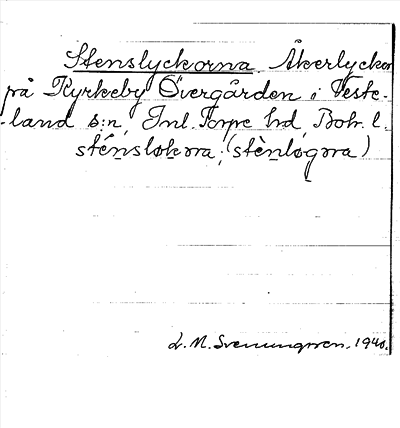 Stenslyckorna. Åkerlyckor
på Kyrkeby Övergården i Veste-
-land s:n, Inl. Torpe hd, Boh. l.
sténsløkɷra; (stènløgɷra)
L. M. Svenungsson. 1940.